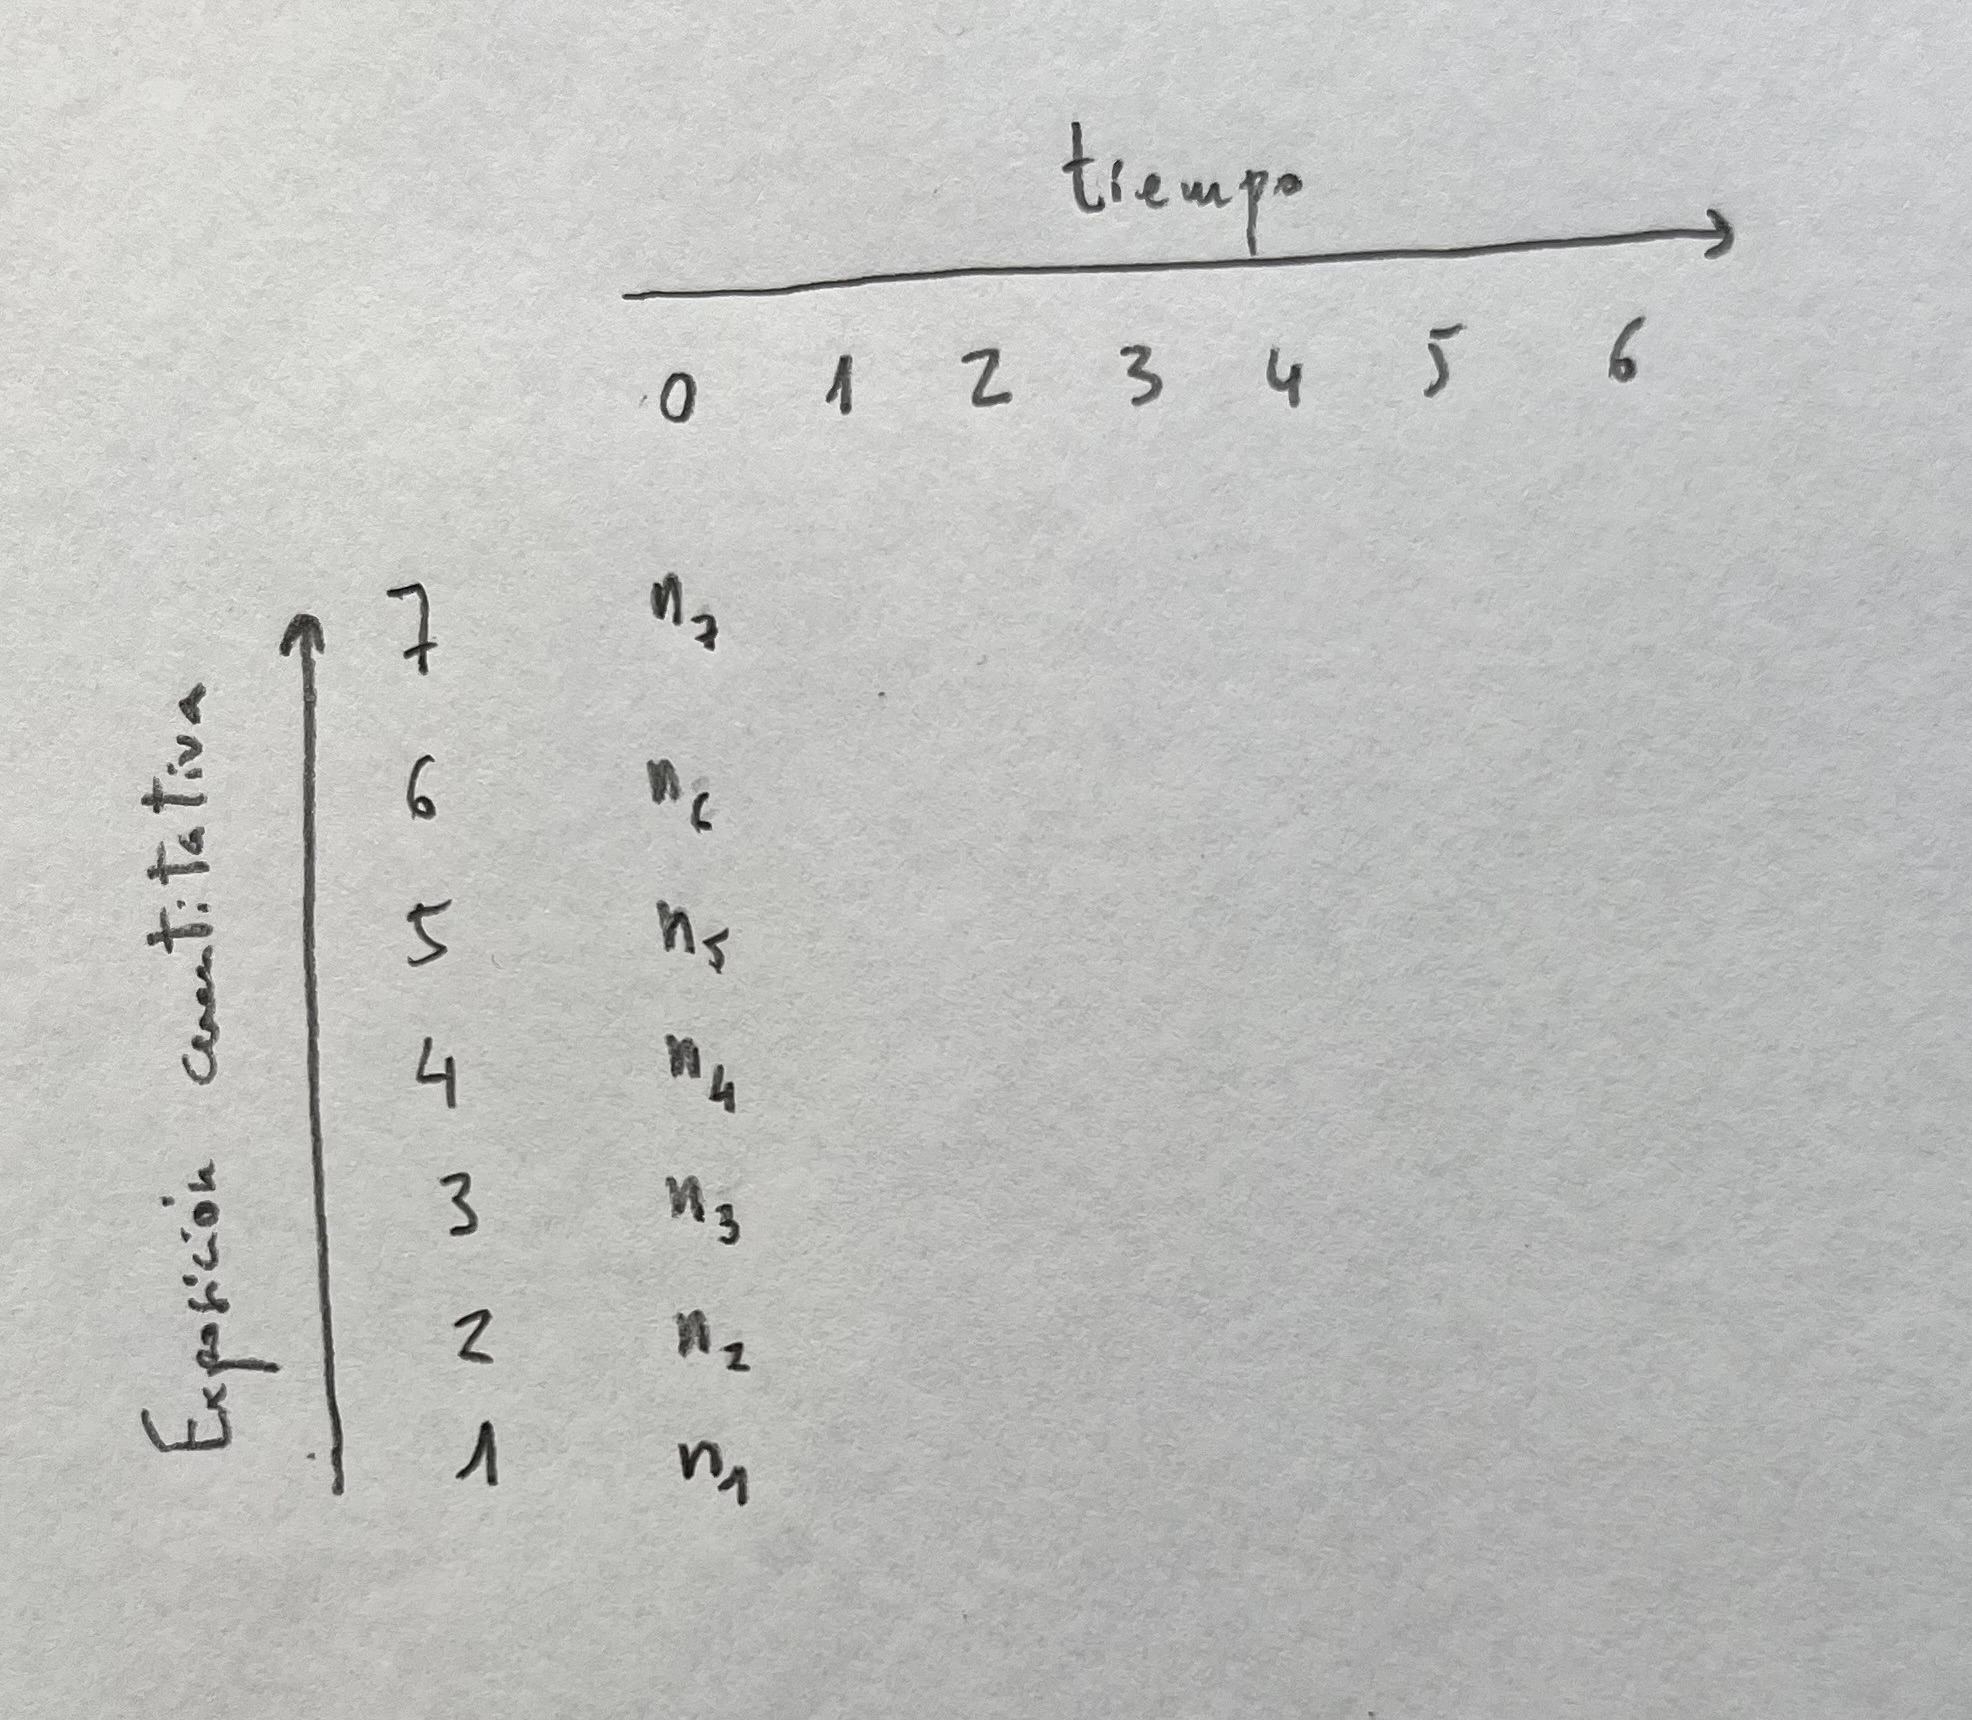 tiempo
0 1 2 3 4 5 6
Exposición cuantitativa
7 n7
6 n6
5 n5
4 n4
3 n3
2 n2
1 n1